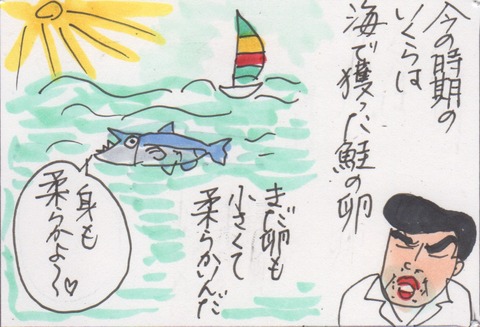 今の時期の
いくらは
海で獲った鮭の卵
まだ卵も
小さくて
柔らかいんだ
身も
柔らかよ〜♡